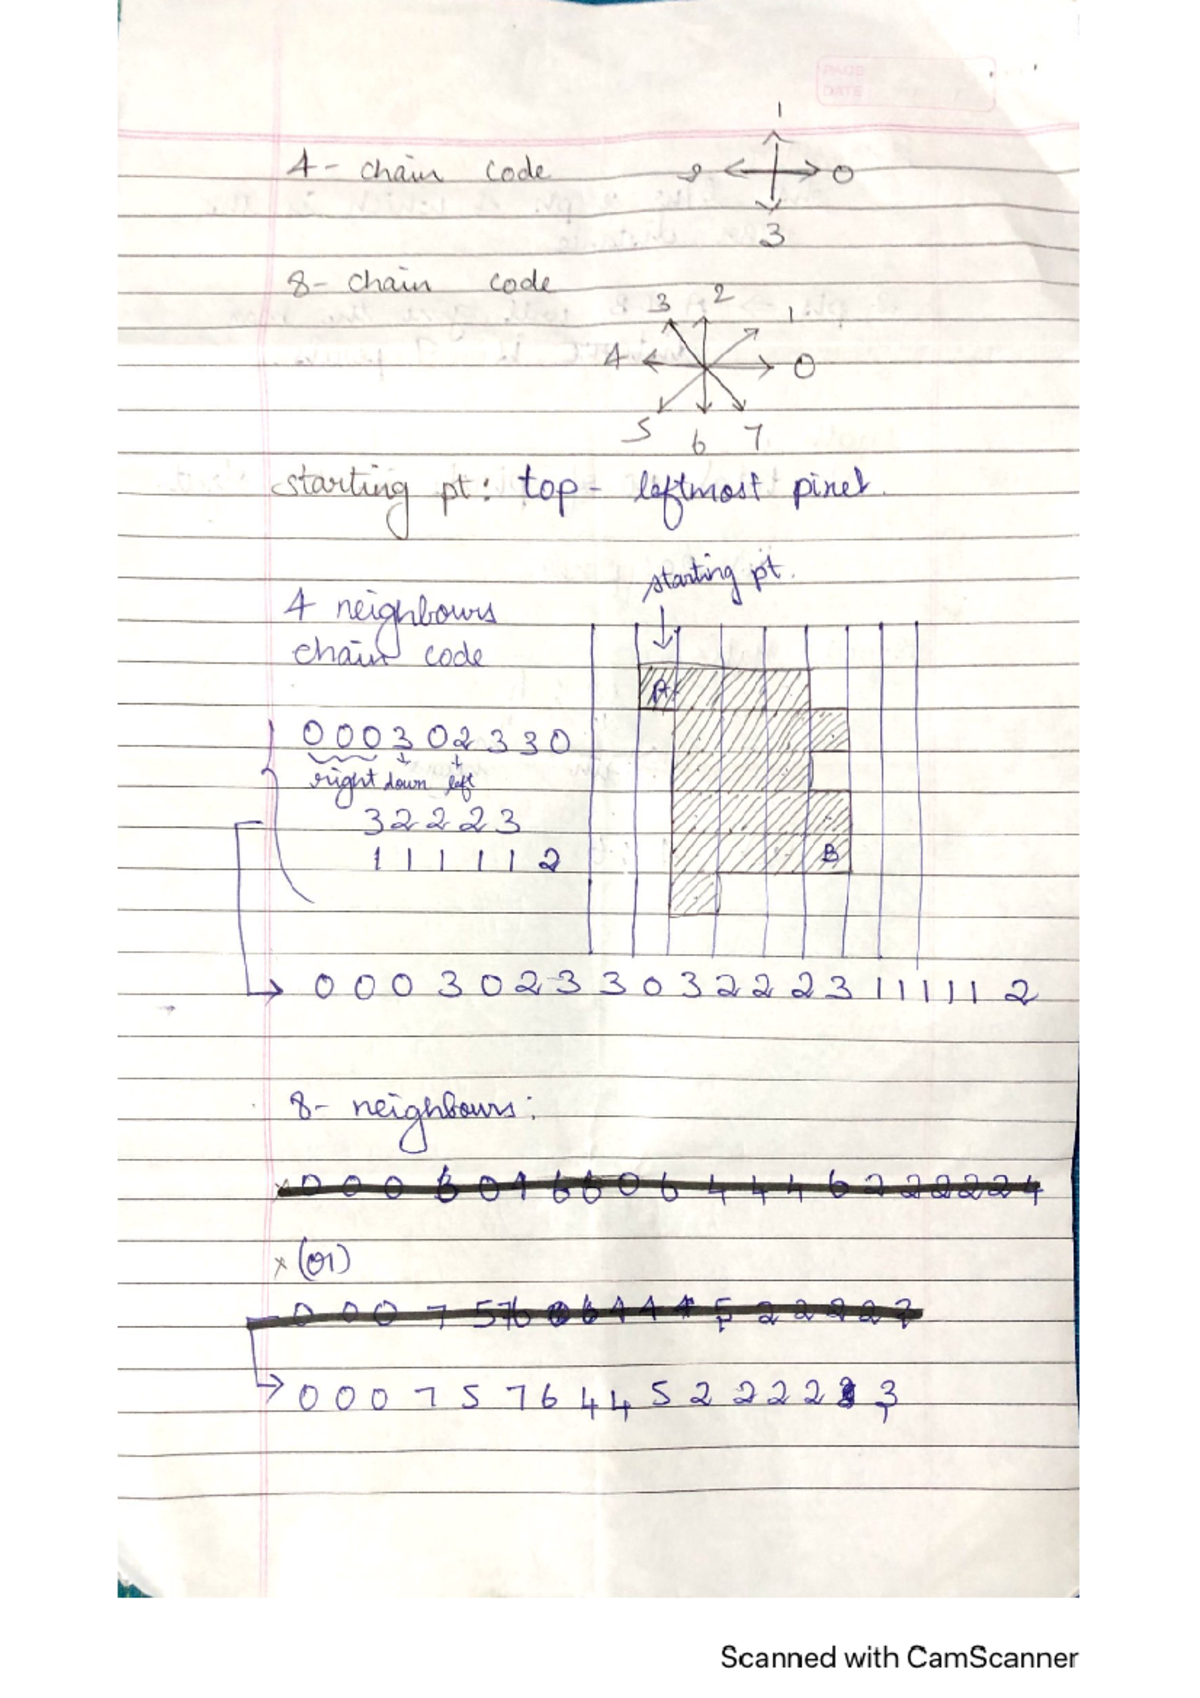 PAGE
DATE
1
4- chain code 2 0
3
8- chain code
3 2 1
4 0
5 6 7
starting pt: top- leftmost pixel.
starting pt.
4 neighbours
chain code
A
0 0 0 3 0 2 3 3 0
right down left
3 2 2 2 3
1 1 1 1 1 2
B
0 0 0 3 0 2 3 3 0 3 2 2 2 3 1 1 1 1 1 2
8- neighbours:
x 0 0 0 6 0 4 6 6 0 6 4 4 4 6 2 2 2 2 2 4
x (or)
0 0 0 7 5 7 6 4 4 5 2 2 2 2 3
Scanned with CamScanner